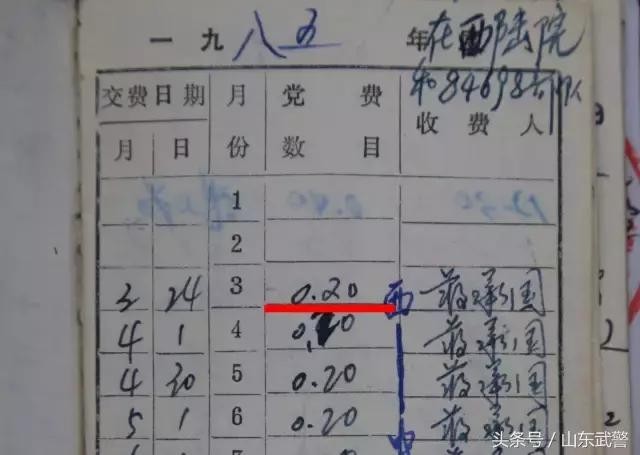 一九八五年 在西陆院
和84698部队
交费日期 月份 党费数目 收费人
月 日
1
2
3 24 3 0.20 西 蒋承国
4 1 4 0.20 蒋承国
4 30 5 0.20 蒋承国
5 1 6 0.20 蒋承国
7
头条号/山东武警